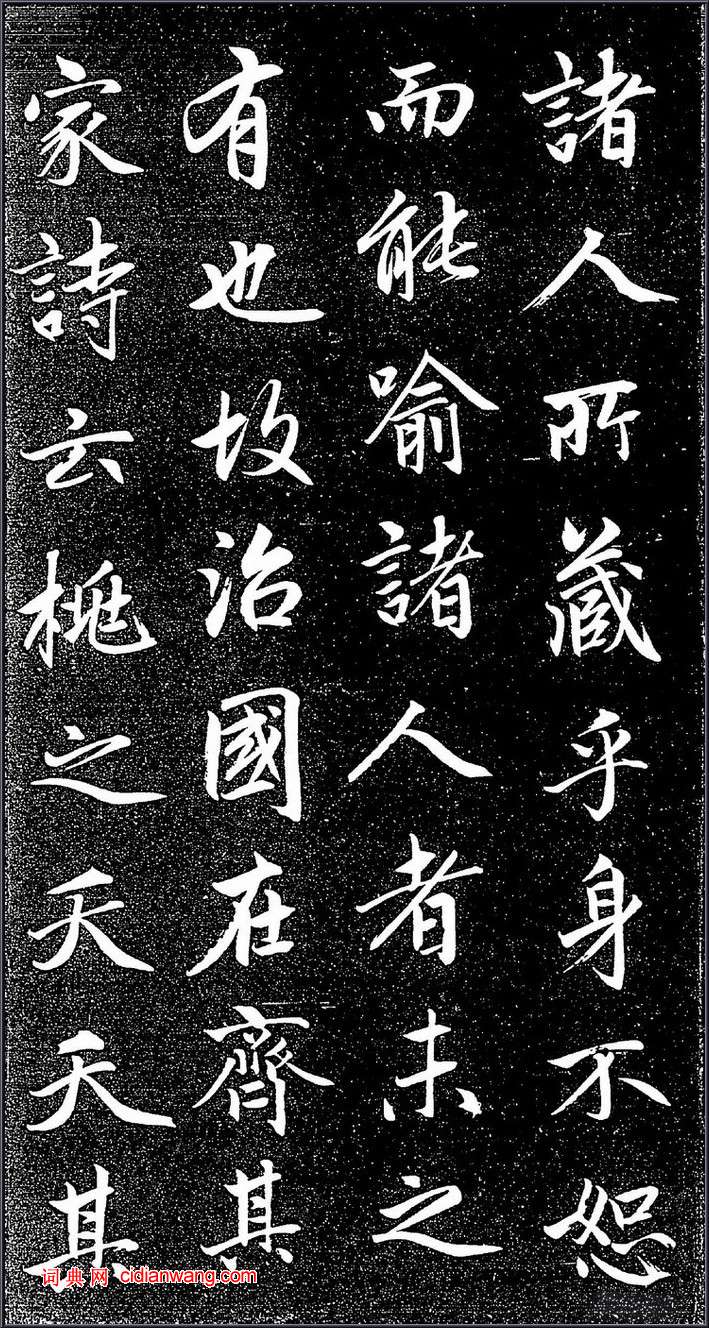 諸人所藏乎身不恕
而能喻諸人者未之
有也故治國在齊其
家詩云桃之夭夭其
词典网 cidianwang.com